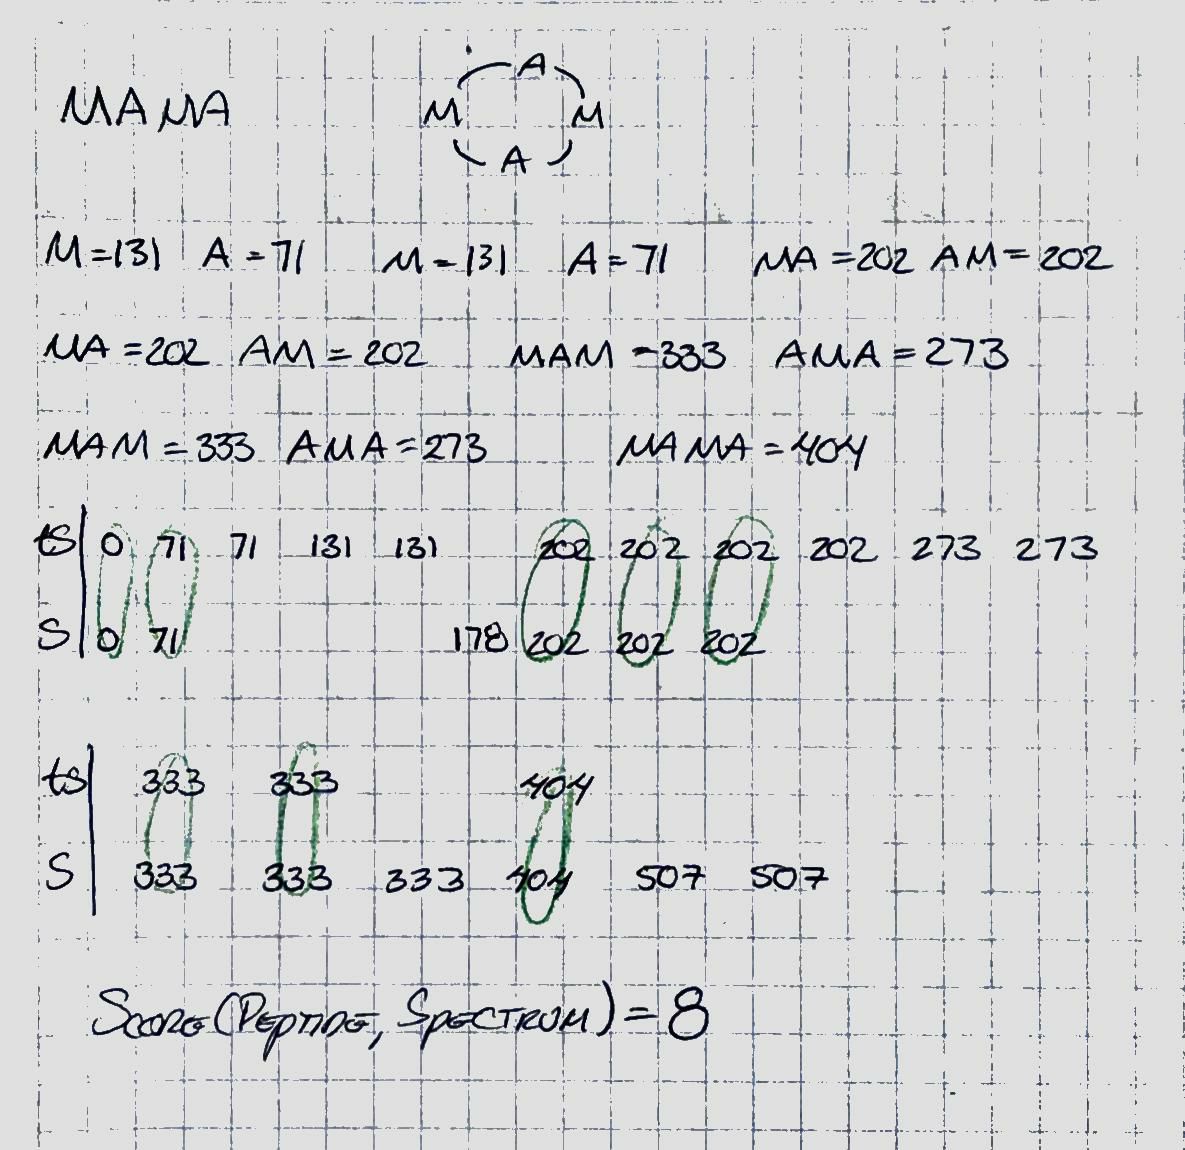 MAMA
A
M M
A
M=131 A=71 M=131 A=71 MA=202 AM=202
MA=202 AM=202 MAM=333 AMA=273
MAM=333 AMA=273 MAMA=404
ts 0 71 71 131 131 202 202 202 202 273 273
S 0 71 178 202 202 202
ts 333 333 404
S 333 333 333 404 507 507
SCORE(PEPTIDE, SPECTRUM)=8